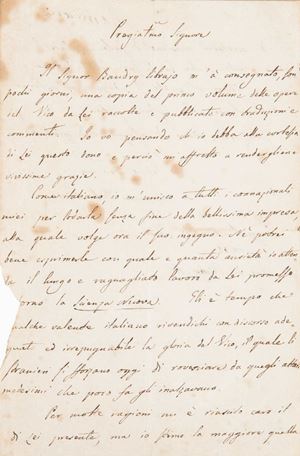 Pregiatmo Signore
Il Signor Baudry librajo m'à consegnato, son
pochi giorni, una copia del primo volume delle opere
del Vico da Lei raccolte e pubblicate con traduzioni e
commenti. Io vo pensando ch'io debba alla cortesia
di Lei questo dono e perciò m'affretto a rendergliene
vivissime grazie.
Come italiano, io m'unisco a tutti i connazionali
miei per lodarla senza fine della bellissima impresa
alla quale volge ora il suo ingegno. Nè potrei
bene esprimerle con quale e quanta ansietà io atten
da il lungo e ragguagliato lavoro da Lei promesso
torno la Scienza Nuova. Egli è tempo che
qualche valente italiano rivendichi con discorso ade
quato ed irrepugnabile la gloria del Vico, il quale li
stranieri si sforzano oggi di rovesciare da quegli altari
medesimi che poco fa gli inalzavano.
Per molte ragioni mi è riuscito caro il
di Lei presente, ma io stimo la maggiore quella